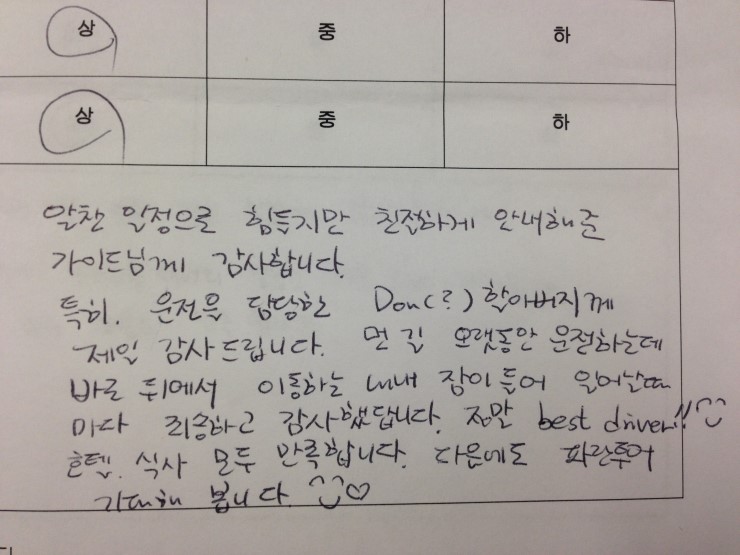 상 중 하
상 중 하
알찬 일정으로 힘들지만 친절하게 안내해준
가이드님께 감사합니다.
특히. 운전을 담당한 Don(?) 할아버지께
제일 감사드립니다. 먼 길 오랫동안 운전하는데
바로 뒤에서 이동하는 내내 잠이 들어 일어날때
마다 죄송하고 감사했답니다. 정말 best driver!!
호텔. 식사 모두 만족합니다. 다음에도 파란투어
기대해 봅니다.